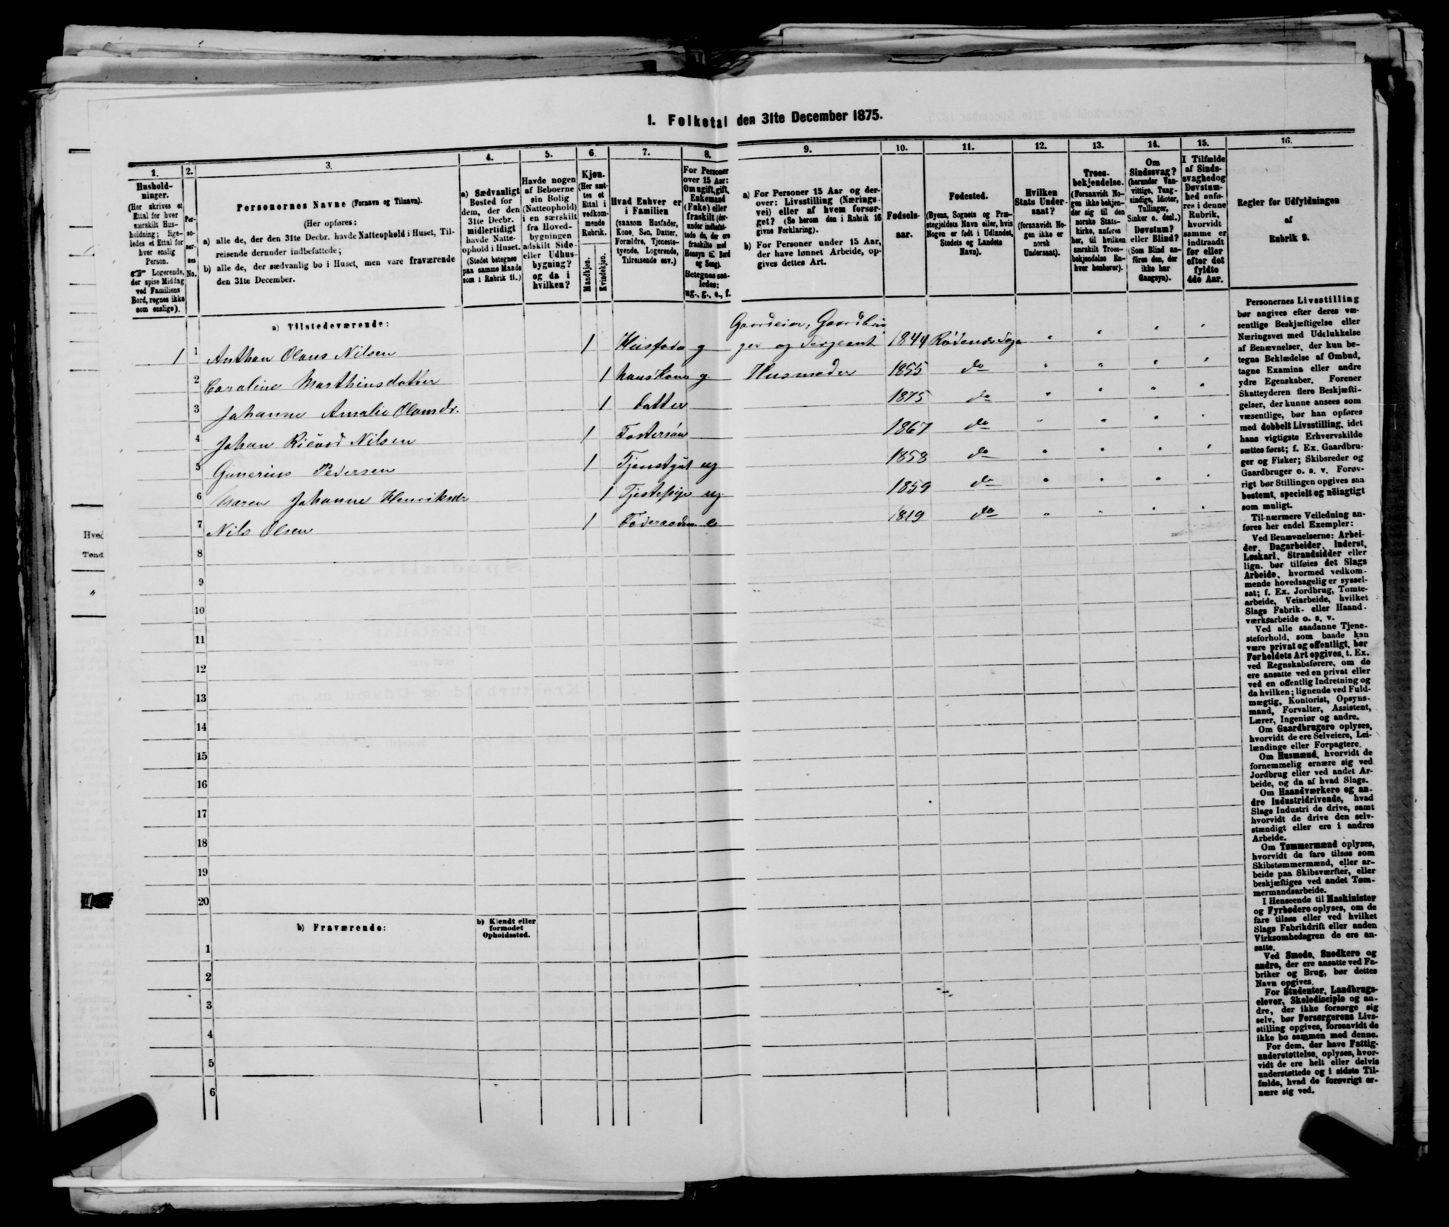 1. Folketal den 31te December 1875.
1.
2.
3.
4.
5.
6.
7.
8.
9.
10.
11.
12.
13.
14.
15.
16.
Hushold-
ninger.
(Her skrives et
Ettal for hver
særskilt Hus-
holdning; lige-
ledes et Ettal for
hver enslig
Person.
☞ Logerende,
der spise Middag
ved Familiens
Bord, regnes ikke
som enslige).
Personernes Navne (Fornavn og Tilnavn).
(Her opføres:
a) alle de, der den 31te Decbr. havde Natteophold i Huset, Til-
reisende derunder indbefattede;
b) alle de, der sædvanlig bo i Huset, men vare fraværende
den 31te December.
a) Sædvanligt
Bosted for
dem, der den
31te Decbr.
midlertidigt
havde Natte-
ophold i Huset.
(Stedet betegnes
paa samme Maade
som i Rubrik 11.)
Havde nogen
af Beboerne
sin Bolig
(Natteophold)
i en særskilt
fra Hoved-
bygningen
adskilt Side-
eller Udhus-
bygning?
og da i
hvilken?
Kjøn.
(Her sæt-
tes et
Ettal i
vedkom-
mende
Rubrik.
Mandkjøn.
Kvindekjøn.
Hvad Enhver er
i Familien
(saasom Husfader,
Kone, Søn, Datter,
Forældre, Tjeneste-
tyende, Logerende,
Tilreisende osv.)
For Personer
over 15 Aar:
Om ugift, gift,
Enkemand
(Enke) eller
fraskilt
Betegnes saa-
ledes:
ug., g., e., f.
a) For Personer 15 Aar og der-
over: Livsstilling (Nærings-
vei) eller af hvem forsør-
get? (Se herom den i Rubrik 16
givne Forklaring).
b) For Personer under 15 Aar,
der have lønnet Arbeide, op-
gives dettes Art.
Fødsels-
aar.
Fødested.
(Byens, Sognets og Præ-
stegjeldets Navn eller, hvis
Nogen er født i Udlandet,
Stedets og Landets
Navn).
Hvilken
Stats Under-
saat?
(forsaavidt No-
gen ikke er
norsk
Undersaat).
Troes-
bekjendelse.
(Forsaavidt No-
gen ikke bekjen-
der sig til den
norske Stats-
kirke, anføres
her, til hvilken
særskilt Troes-
bekjendelse En-
hver henhører).
Om
Sindssvag?
(herunder Van-
vittige, Tung-
sindige, Idioter,
Tullinger,
Sinker o. desl.)
Døvstum?
eller Blind?
(Som Blind an-
føres den, der
ikke har
Gangsyn).
I Tilfælde
af Sinds-
svaghed og
Døvstum-
hed anfø-
res i denne
Rubrik,
hvorvidt
samme er
indtraadt
før eller
efter det
fyldte
4de Aar.
Regler for Udfyldningen
af
Rubrik 9.
a) Tilstedeværende:
1 1 Anthon Olaus Nilsen 1 Husfader g Gaardeier, Gaardbru
ger og Sergeant 1849 Rødenes Sogn
2 Caroline Marthinsdatter 1 hans Kone g Husmoder 1855 do
3 Johanne Amalie Olausdr. 1 datter 1875 do
4 Johan Ricard Nilsen 1 Fostersøn 1867 do
5 Gunerius Pedersen 1 Tjenstgut ug 1858 do
6 Maren Johanne Henriksdr 1 Tjestepige ug 1859 do
7 Nils Olsen 1 Føderaadsm e 1819 do
8
9
10
11
12
13
14
15
16
17
18
19
20
b) Fraværende:
b) Kjendt eller
formodet
Opholdssted.
1
2
3
4
5
6
Personernes Livsstilling
bør angives efter deres væ-
sentlige Beskjæftigelse eller
Næringsvei med Udelukkelse
af Benævnelser, der kun be-
tegne Beklædelse af Ombud,
tagne Examina eller andre
ydre Egenskaber. Forener
Skatteyderen flere Beskjæfti-
gelser, der kunne ansees som
væsentlige, bør han opføres
med dobbelt Livsstilling, idet
hans vigtigste Erhvervskilde
sættes først; f. Ex. Gaardbru-
ger og Fisker; Skibsreder og
Gaardbruger o. s. v. Forøv-
rigt bør Stillingen opgives saa
bestemt, specielt og nøiagtigt
som muligt.
Til nærmere Veiledning an-
føres her endel Exempler:
Ved Benævnelserne: Arbei-
der, Dagarbeider, Inderst,
Løskarl, Strandsidder eller
lign. bør tilføies det Slags
Arbeide, hvormed vedkom-
mende hovedsagelig er syssel-
sat; f. Ex. Jordbrug, Tomte-
arbeide, Veiarbeide, hvilket
Slags Fabrik- eller Haand-
værksarbeide o. s. v.
Ved alle saadanne Tjene-
steforhold, som baade kan
være privat og offentligt, bør
Forholdets Art opgives, t. Ex.
ved Regnskabsførere, om de
ere ansatte ved en privat eller
ved en offentlig Indretning og
da hvilken; lignende ved Fuld-
mægtig, Kontorist, Opsyns-
mand, Forvalter, Assistent,
Lærer, Ingeniør og andre.
Om Gaardbrugere oplyses,
hvorvidt de ere Selveiere, Lei-
lændinge eller Forpagtere.
Om Husmænd, hvorvidt de
fornemmelig ernære sig ved
Jordbrug eller ved andet Ar-
beide, og da af hvad Slags.
Om Haandværkere og an-
dre Industridrivende, hvad
Slags Industri de drive, samt
hvorvidt de drive den selv-
stændigt eller ere i andres
Arbeide.
Om Tømmermænd oplyses,
hvorvidt de fare tilsøs som
Skibstømmermænd, eller ar-
beide paa Skibsværfter, eller
beskjæftiges ved andet Tøm-
mermandsarbeide.
I Henseende til Maskinister
og Fyrbødere oplyses, om de
fare tilsøs eller ved hvilket
Slags Fabrikdrift eller anden
Virksomhedsgren de ere an-
satte.
Ved Smede, Snedkere og
andre, der ere ansatte ved Fa-
briker og Brug, bør dettes
Navn opgives.
For Studenter, Landbrugs-
elever, Skoledisciple og an-
dre, der ikke forsørge sig
selv, bør Forsørgerens Livs-
stilling opgives, forsaavidt de
ikke bo sammen med denne.
For dem, der have Fattig-
understøttelse, oplyses, hvor-
vidt de ere helt eller delvis
understøttede og i sidste Til-
fælde, hvad de forøvrigt er-
nære sig ved.